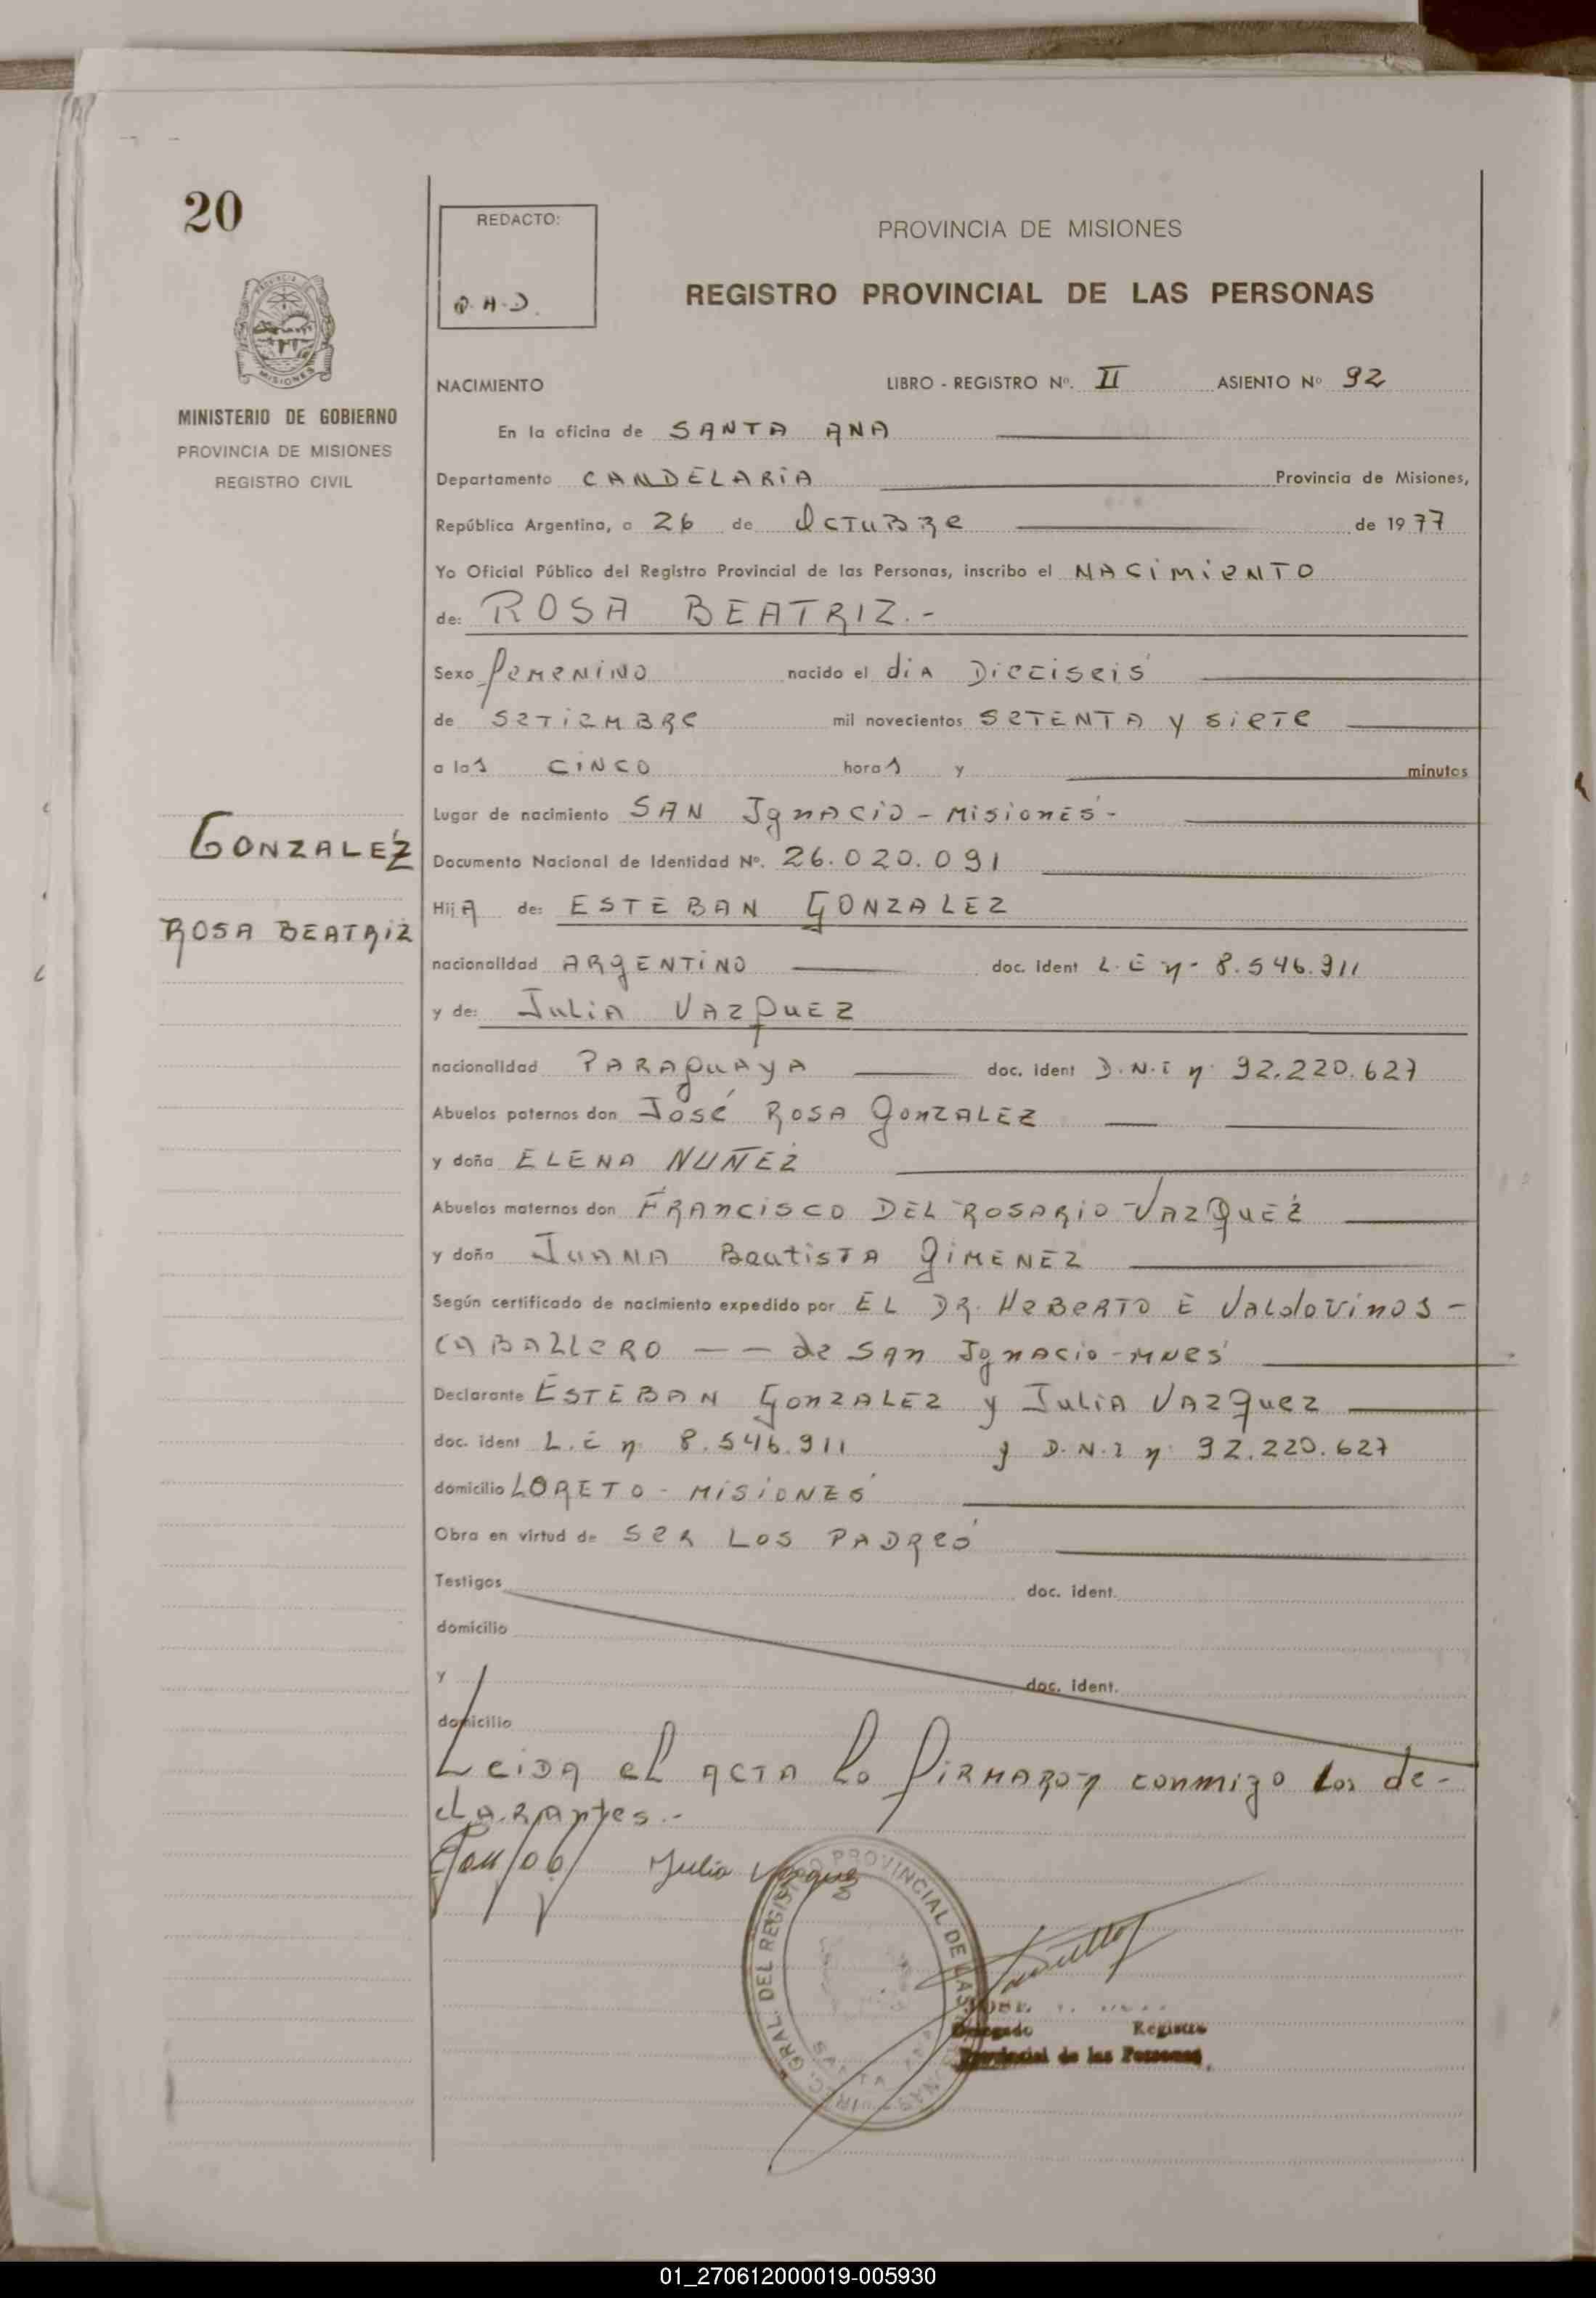 20
REDACTO:
PROVINCIA DE MISIONES
REGISTRO PROVINCIAL DE LAS PERSONAS
MISIONES
MINISTERIO DE GOBIERNO
PROVINCIA DE MISIONES
REGISTRO CIVIL
NACIMIENTO LIBRO - REGISTRO Nº. II ASIENTO Nº 92
En la oficina de SANTA ANA
Departamento CANDELARIA Provincia de Misiones,
República Argentina, a 26 de OCTUBRE de 1977
Yo Oficial Público del Registro Provincial de las Personas, inscribo el NACIMIENTO
de: ROSA BEATRIZ.-
Sexo femENINO nacido el dia DIECISEIS
de SETIEMBRE mil novecientos SETENTA y SIETE
a las CINCO horas y minutos
Lugar de nacimiento SAN IgnACIO - MISIONES-
GONZALEZ
Documento Nacional de Identidad Nº. 26.020.091
HijA de: ESTEBAN GONZALEZ
ROSA BEATRIZ
nacionalidad ARGENTINO doc. ident L.E nº 8.546.911
y de: JULIA VAZQUEZ
nacionalidad PARAGUAYA doc. ident D.N.I nº 92.220.627
Abuelos paternos don JOSÉ ROSA GONZALEZ
y doña ELENA NUÑEZ
Abuelos maternos don FRANCISCO DEL ROSARIO VAZQUEZ
y doña JUANA BautISTA GIMENEZ
Según certificado de nacimiento expedido por EL DR. HEBERTO E VALdOVINOS -
CABALLERO — — de SAN IgnACIO - MNES
Declarante ESTEBAN GONZALEZ y JULIA VAZQUEZ
doc. ident L.E nº 8.546.911 y D.N.I nº 92.220.627
domicilio LORETO - MISIONES
Obra en virtud de SER LOS PADRES
Testigos doc. ident.
domicilio
y doc. ident.
domicilio
LeIDA el ACTA lo fIRMARON conmigo los de-
cLARAntes.-
Julia Vazquez
DIREC. GRAL. DEL REGISTRO PROVINCIAL DE LAS PERSONAS
SANTA ANA
JOSE
Delegado Registro
Provincial de las Personas
01_270612000019-005930